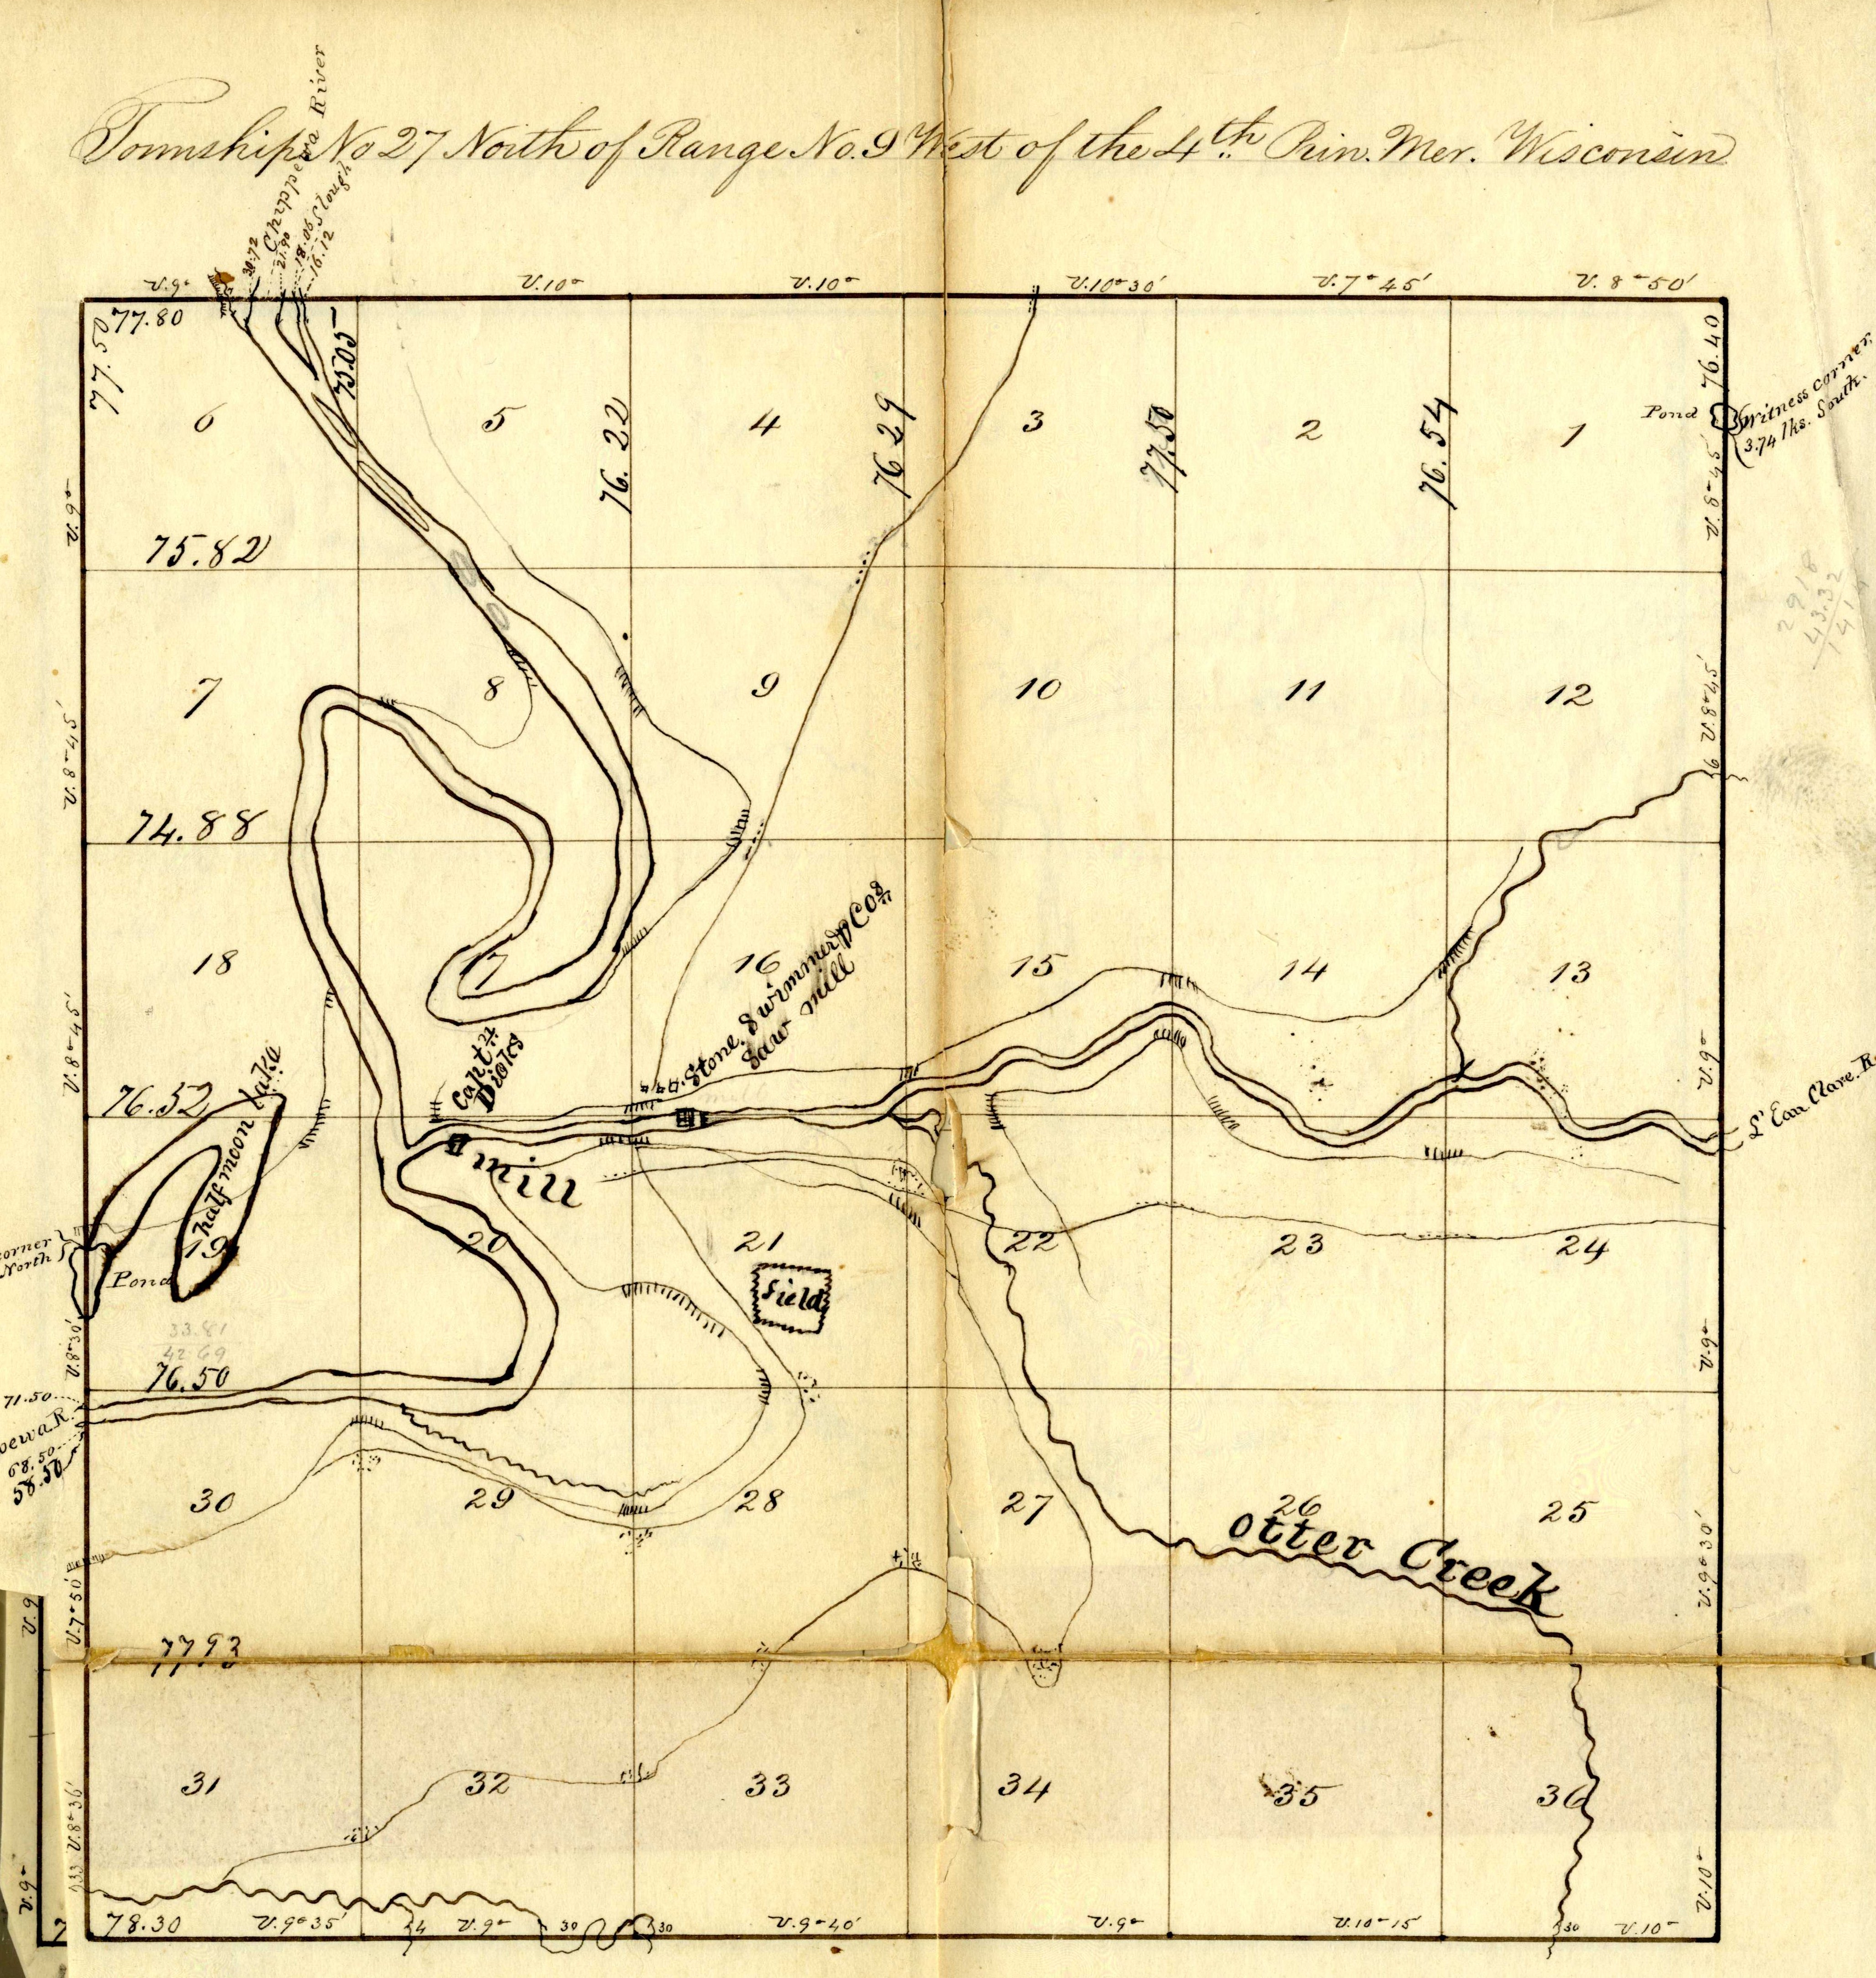 Township No 27 North of Range No. 9 West of the 4th Prin. Mer. Wisconsin
Chippewa River
Slough
30.72
21.90
18.06
16.12
V.9°
V.10°
V.10°
V.10°30'
V.7°45'
V.8°50'
77.80
77.50
75.05
76.22
76.29
77.50
76.54
76.40
6
5
4
3
2
1
Pond
Witness corner
3.74 lks. South.
V.9°
V.8°45'
75.82
2918
43.32
7
8
9
10
11
12
V.8°45'
V.8°45'
74.88
18
17
16
15
14
13
V.8°45'
V.9°
Stone, Swimmer & Cos
Saw mill
Captn
Dioles
76.52
half moon lake
mill
L' Eau Clare. R
corner
North
Pond
19
20
21
22
23
24
field
33.81
42.69
V.8°30'
V.9°
76.50
71.50
pewa R.
68.50
58.50
30
29
28
27
26
25
Otter Creek
V.7°50'
V.9°30'
V.9
77.93
31
32
33
34
35
36
V.8°36'
V.10°
V.9°
78.30
V.9°35'
4
V.9°
30
30
V.9°40'
V.9°
V.10°15'
30
V.10°
7